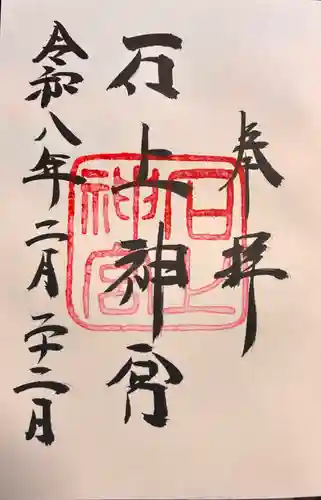 奉拝
石上神宮
令和八年二月廿二月
石上神宮